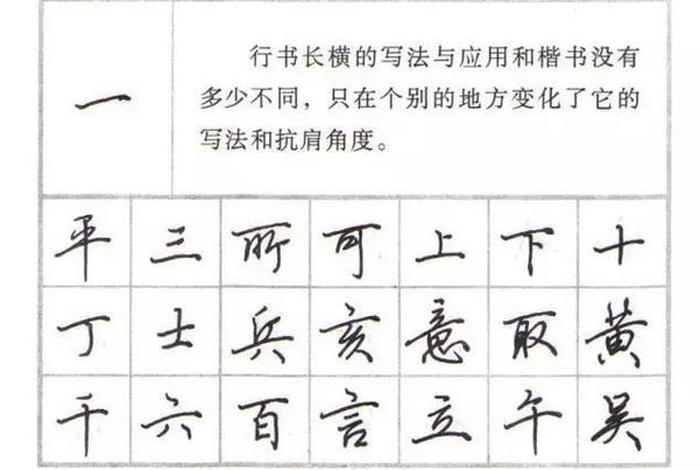 一
行书长横的写法与应用和楷书没有
多少不同，只在个别的地方变化了它的
写法和抗肩角度。
平 三 所 可 上 下 十
丁 士 兵 亥 意 取 黄
千 六 百 言 立 午 吴